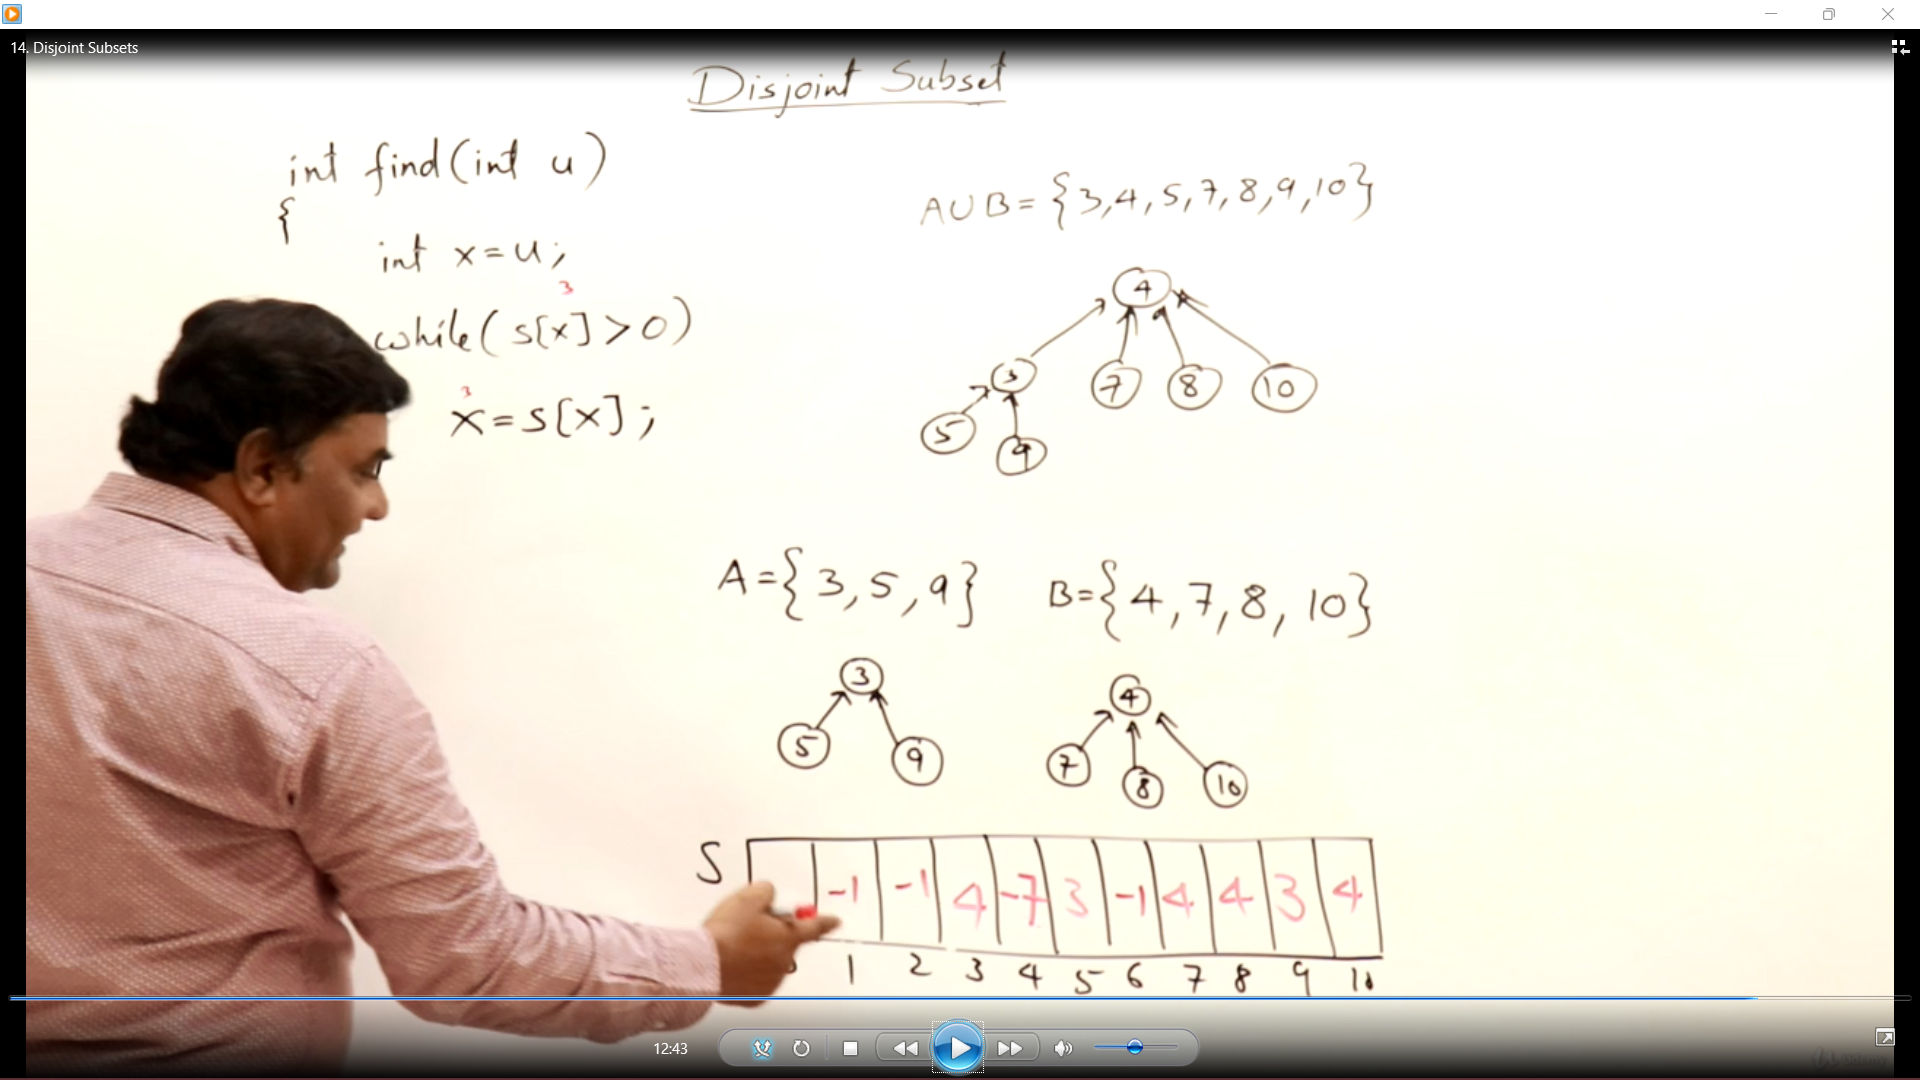 14. Disjoint Subsets
Disjoint Subset
int find(int u)
{
int x=u;
3
while(s[x]>0)
3
x=s[x];
AUB={3,4,5,7,8,9,10}
4
3 7 8 10
5 9
A={3,5,9} B={4,7,8,10}
3 4
5 9 7 8 10
S -1 -1 4 -7 3 -1 4 4 3 4
1 2 3 4 5 6 7 8 9 10
12:43